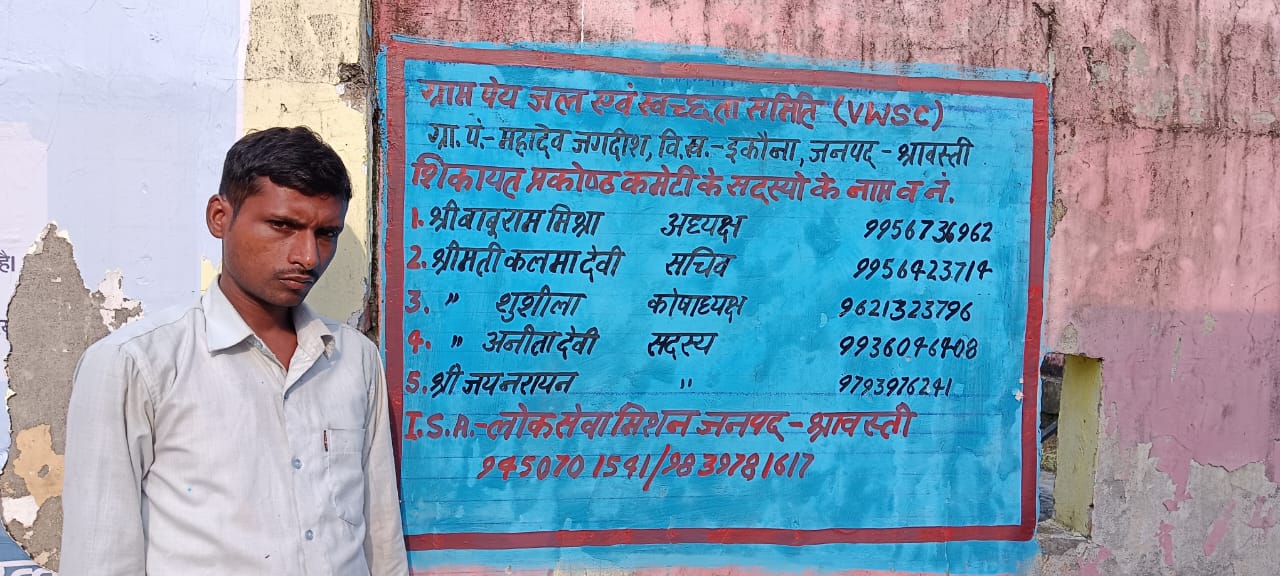 ग्राम पेय जल एवं स्वच्छता समिति (VWSC)
ग्रा.पं.-महादेव जगदीश, वि.ख.-इकौना, जनपद-श्रावस्ती
शिकायत प्रकोष्ठ कमेटी के सदस्यो के नाम व नं.
1. श्री बाबुराम मिश्रा अध्यक्ष 9956736962
2. श्रीमती कलमा देवी सचिव 9956423714
3. " शुशीला कोषाध्यक्ष 9621323796
4. " अनीता देवी सदस्य 9936046408
5. श्री जयनरायन " 9793976241
I.S.A.-लोक सेवा मिशन जनपद-श्रावस्ती
9450701541/9839781617
है।